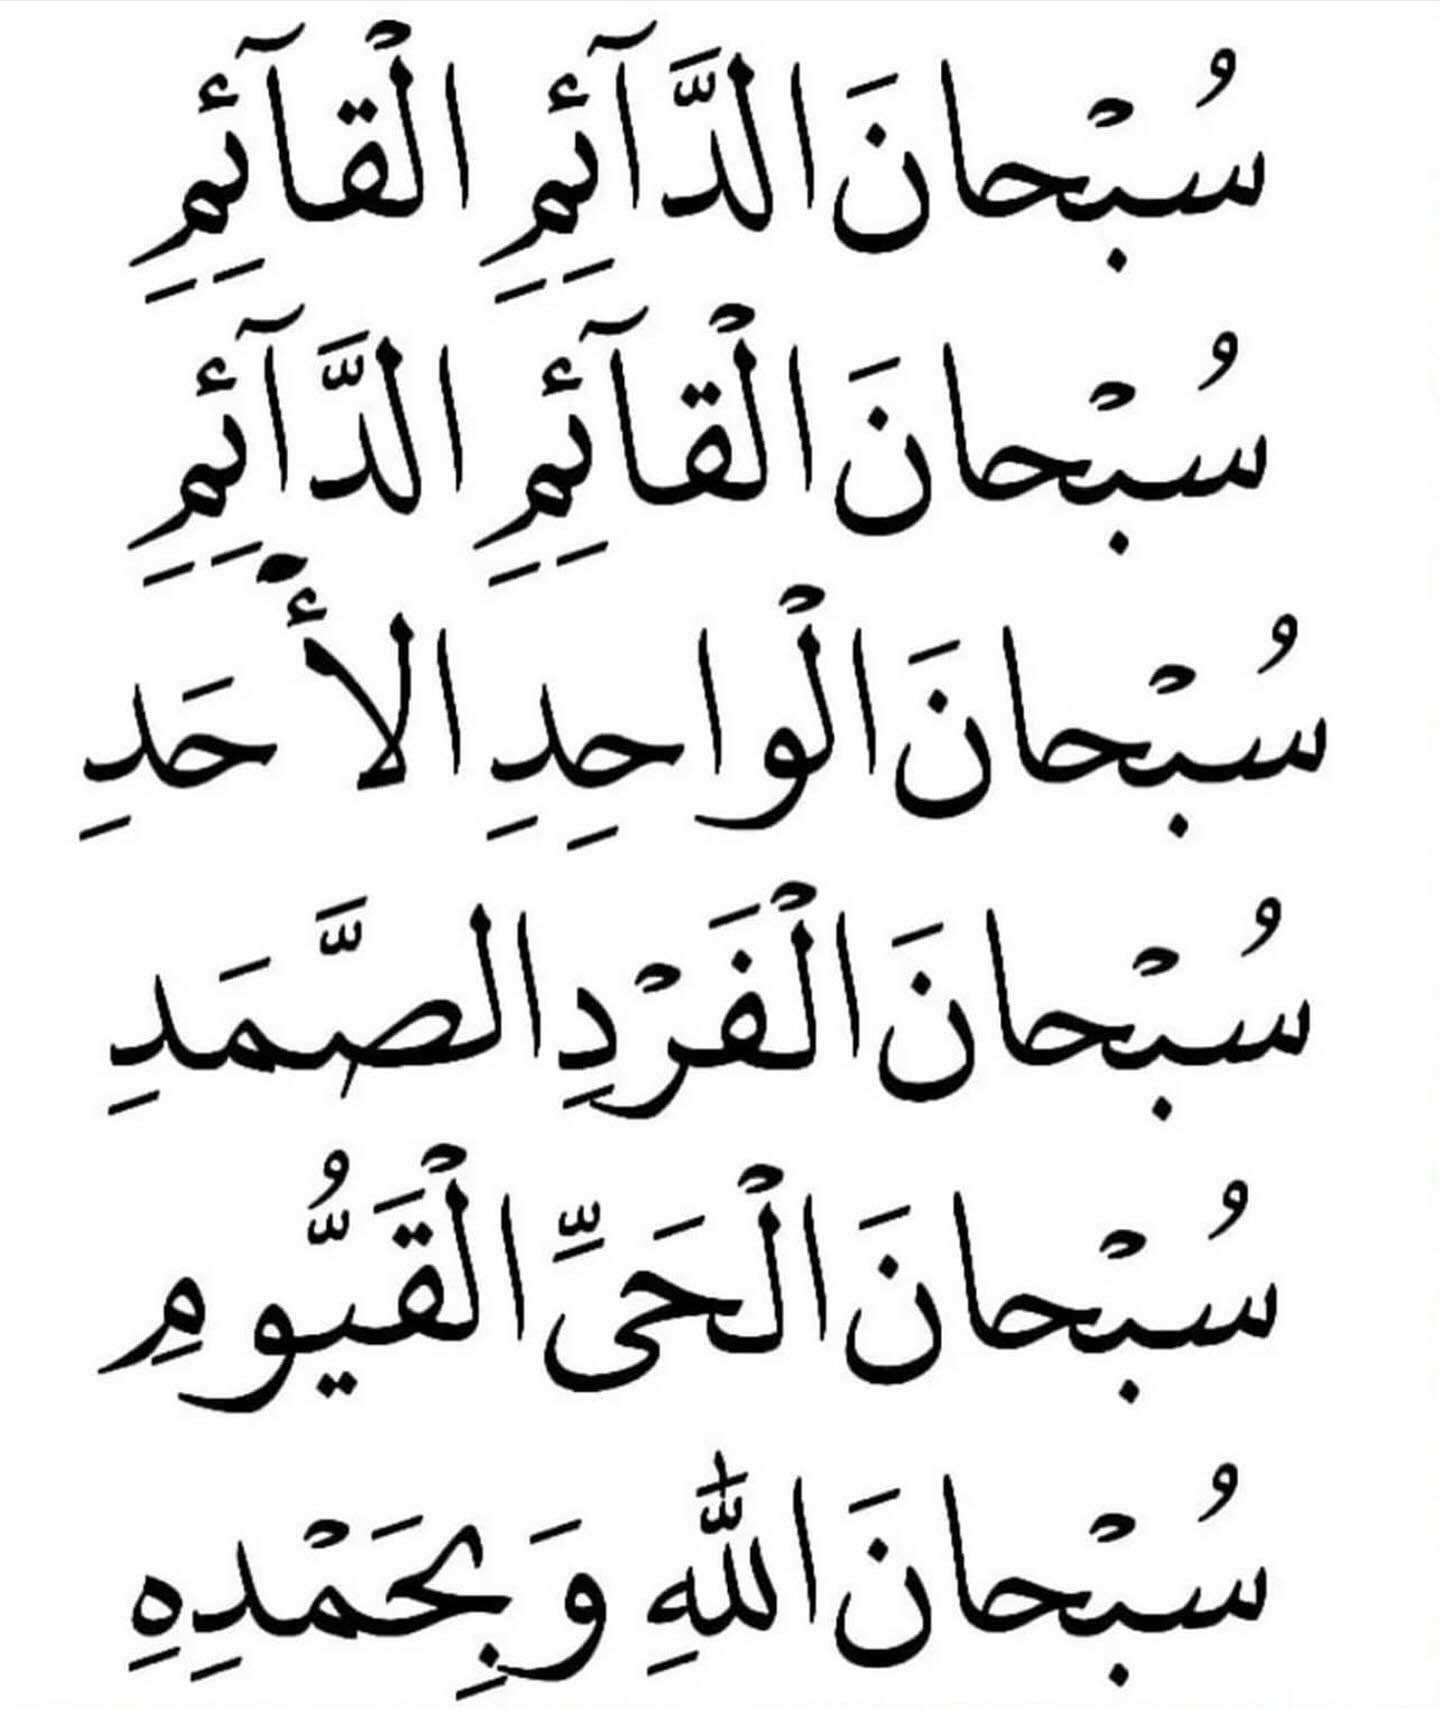 سُبْحانَ الدَّآئِمِ الْقآئِمِ
سُبْحانَ الْقآئِمِ الدَّآئِمِ
سُبْحانَ الْواحِدِ الأَحَدِ
سُبْحانَ الْفَرْدِ الصَّمَدِ
سُبْحانَ الْحَىِّ الْقَيُّومِ
سُبْحانَ اللّٰهِ وَبِحَمْدِهِ